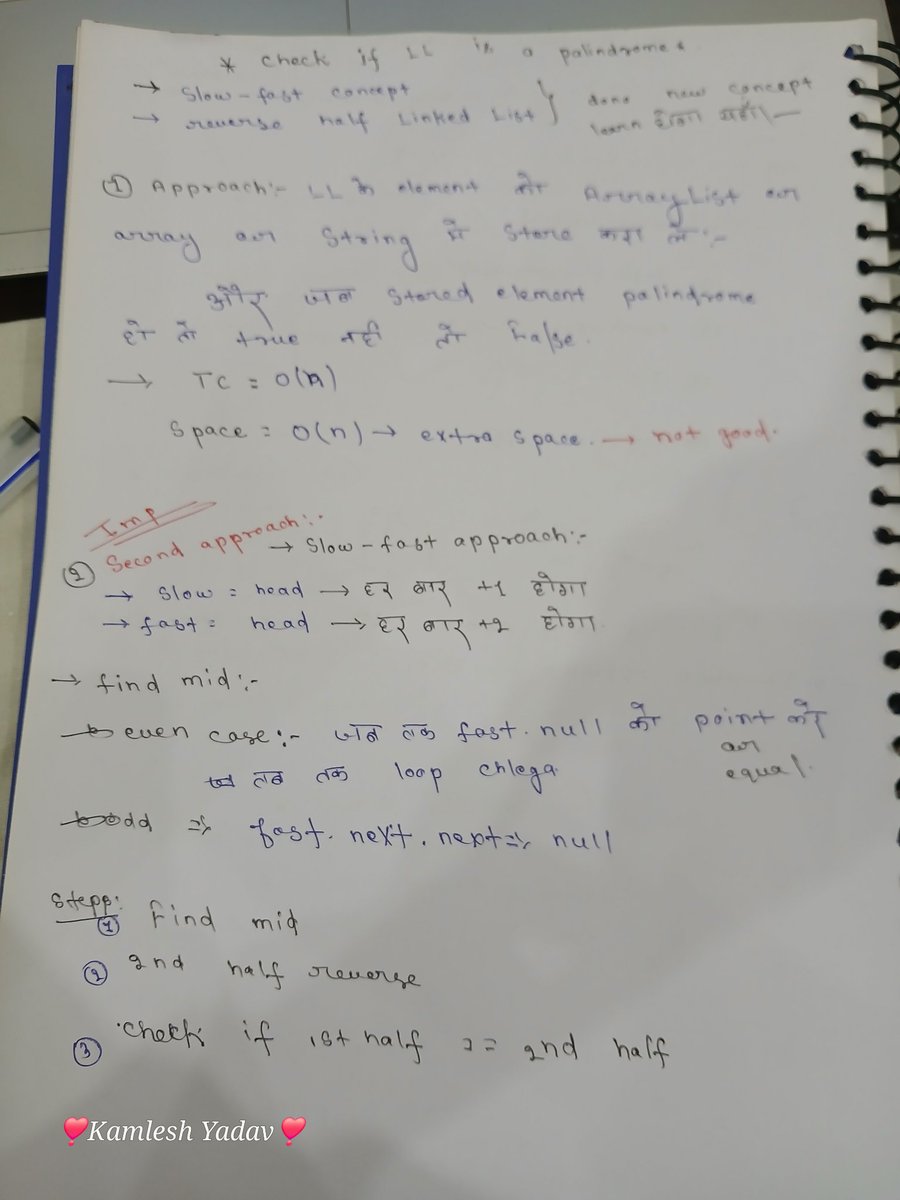 * Check if LL is a palindrome.
→ Slow-fast concept
→ reverse half Linked List } done new concept
learn होगा यहाँ।
① Approach:- LL के element को ArrayList or
array or String में store करा लें:-
और जब stored element palindrome
हो तो true नही तो False.
→ TC = O(n)
Space = O(n) → extra space. → not good.
Imp
② Second approach:- → Slow-fast approach:-
→ Slow = head → हर बार +1 होगा
→ fast = head → हर बार +2 होगा
→ find mid:-
even case:- जब तक fast. null को point करें
or
तब तक loop chlega equal.
odd => fast. next. next => null
Stepp:
① Find mid
② 2nd half reverse
③ check if 1st half == 2nd half
❤️Kamlesh Yadav❤️